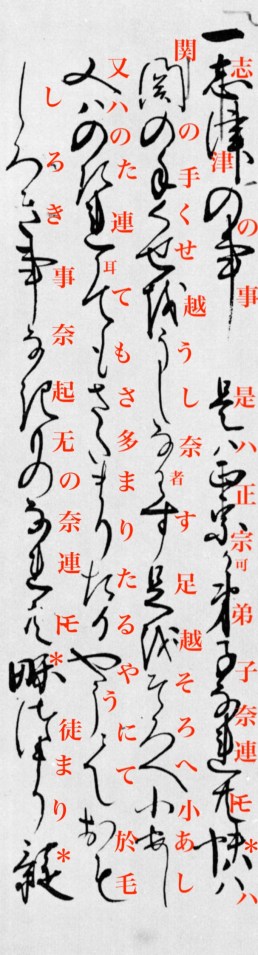 一志津の事 是ハ正宗可弟子奈連𪜈*ハ
関の手くせ越うし奈者す足越そろへ小あし
又ハのた連耳てもさ多まりたるやうにて於毛
しるき事奈起无の奈連𪜈*徒まり*